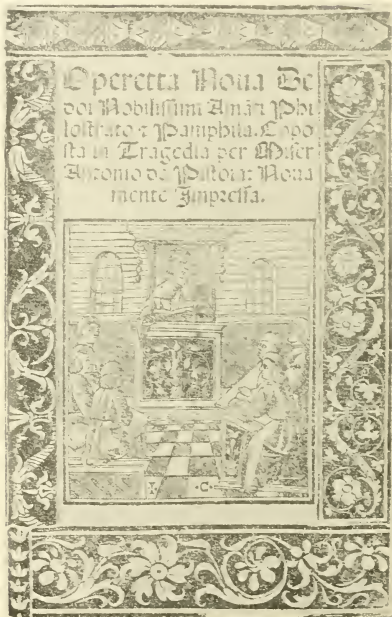 Operetta Noua De
doi Nobilissimi Amãti Phi
lostrato ⁊ Pamphila. Cõpo
sta in Tragedia per Miser
Antonio da Pistoia: Noua
mente Impressa.
I C